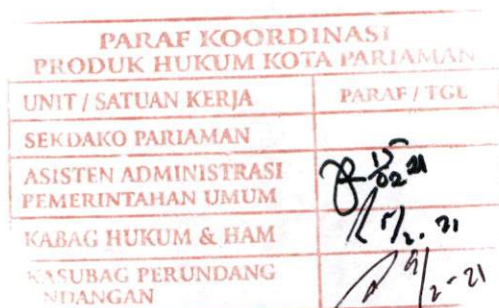 PARAF KOORDINASI
PRODUK HUKUM KOTA PARIAMAN
UNIT / SATUAN KERJA PARAF / TGL
SEKDAKO PARIAMAN
ASISTEN ADMINISTRASI
PEMERINTAHAN UMUM
15/02 21
KABAG HUKUM & HAM
/2. 21
KASUBAG PERUNDANG
NDANGAN
9/2-21